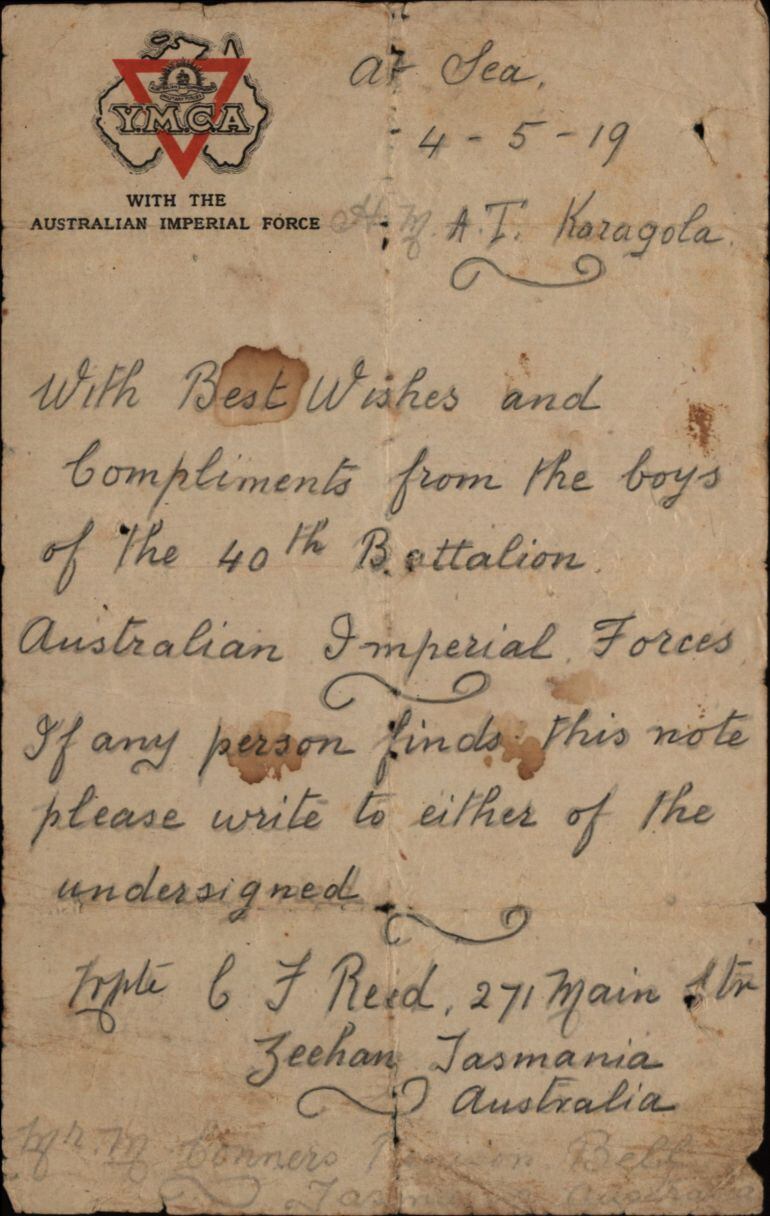 Y.M.C.A
WITH THE
AUSTRALIAN IMPERIAL FORCE
At Sea.
- 4 - 5 - 19
H. M A. T. Karagola.
With Best Wishes and
Compliments from the boys
of the 40th Battalion.
Australian Imperial Forces
If any person finds this note
please write to either of the
undersigned
C F Reed, 271 Main Str
Zeehan Tasmania
Australia
Mr. M Conners Bell
Tasmania Australia